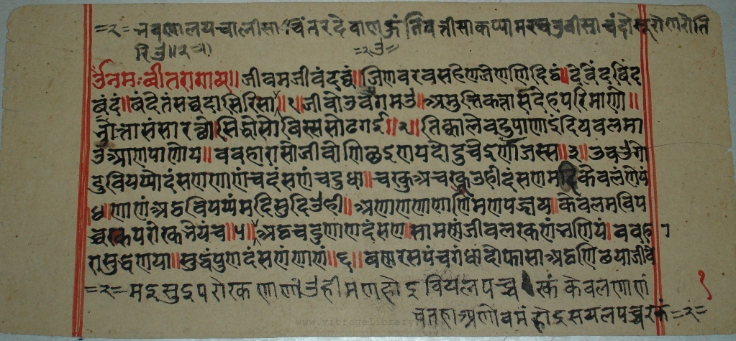 =२= नवणालयचालीसा चिंतरदेवाण हुंति बत्तीसा कप्पामरचउवीसा चंदो सूरो णरो ति
रिउ॥२
=२=
ॐनमः वीतरागाय॥ जीवमजीवं दव्वं॥ जिणवरवसहेण जेण णिद्दिट्ठं॥ देविंदविंद
वंदं॥ वंदे तं सव्वदा सिरिसा॥१॥ जीवो उवउगमउ॥ अमुत्ति कत्ता सदेहपरिमाणो॥
भोत्ता संसारत्थो॥ सिद्धो सो विस्ससोढगई॥२॥ तिक्काले चदुपाणा इंदियबलमा
उ आणपाणो य॥ ववहारा सो जीवो णिच्छयणयदो दु चेदणा जस्स॥३॥ उवउगो
दुवियप्पो दंसणणाणं च दंसणं चदुधा॥ चक्खु अचक्खू उही दंसणमदि केवलं णेयं
॥४॥ णाणं अट्ठवियप्पं मदिसुदिउही॥ अणाणणाणाणि मणपज्जय॥ केवलमवि प
च्चक्खपरोक्खभेयं च॥५॥ अट्ठचदुणाणदंसण॥ सामण्णं जीवलक्खणं भणियं॥ ववहा
रा सुद्धणया॥ सुद्धं पुण दंसणं णाणं॥६॥ वण्णरसपंचगंधा दो फासा अट्ठ णिच्छया जीवे
=२= मइसुइपरोक्खणाणं उही मण होइ वियलपच्चक्खं केवलणाणं
१
च तहा अणोवमं होइ सयलपच्चक्खं =२=